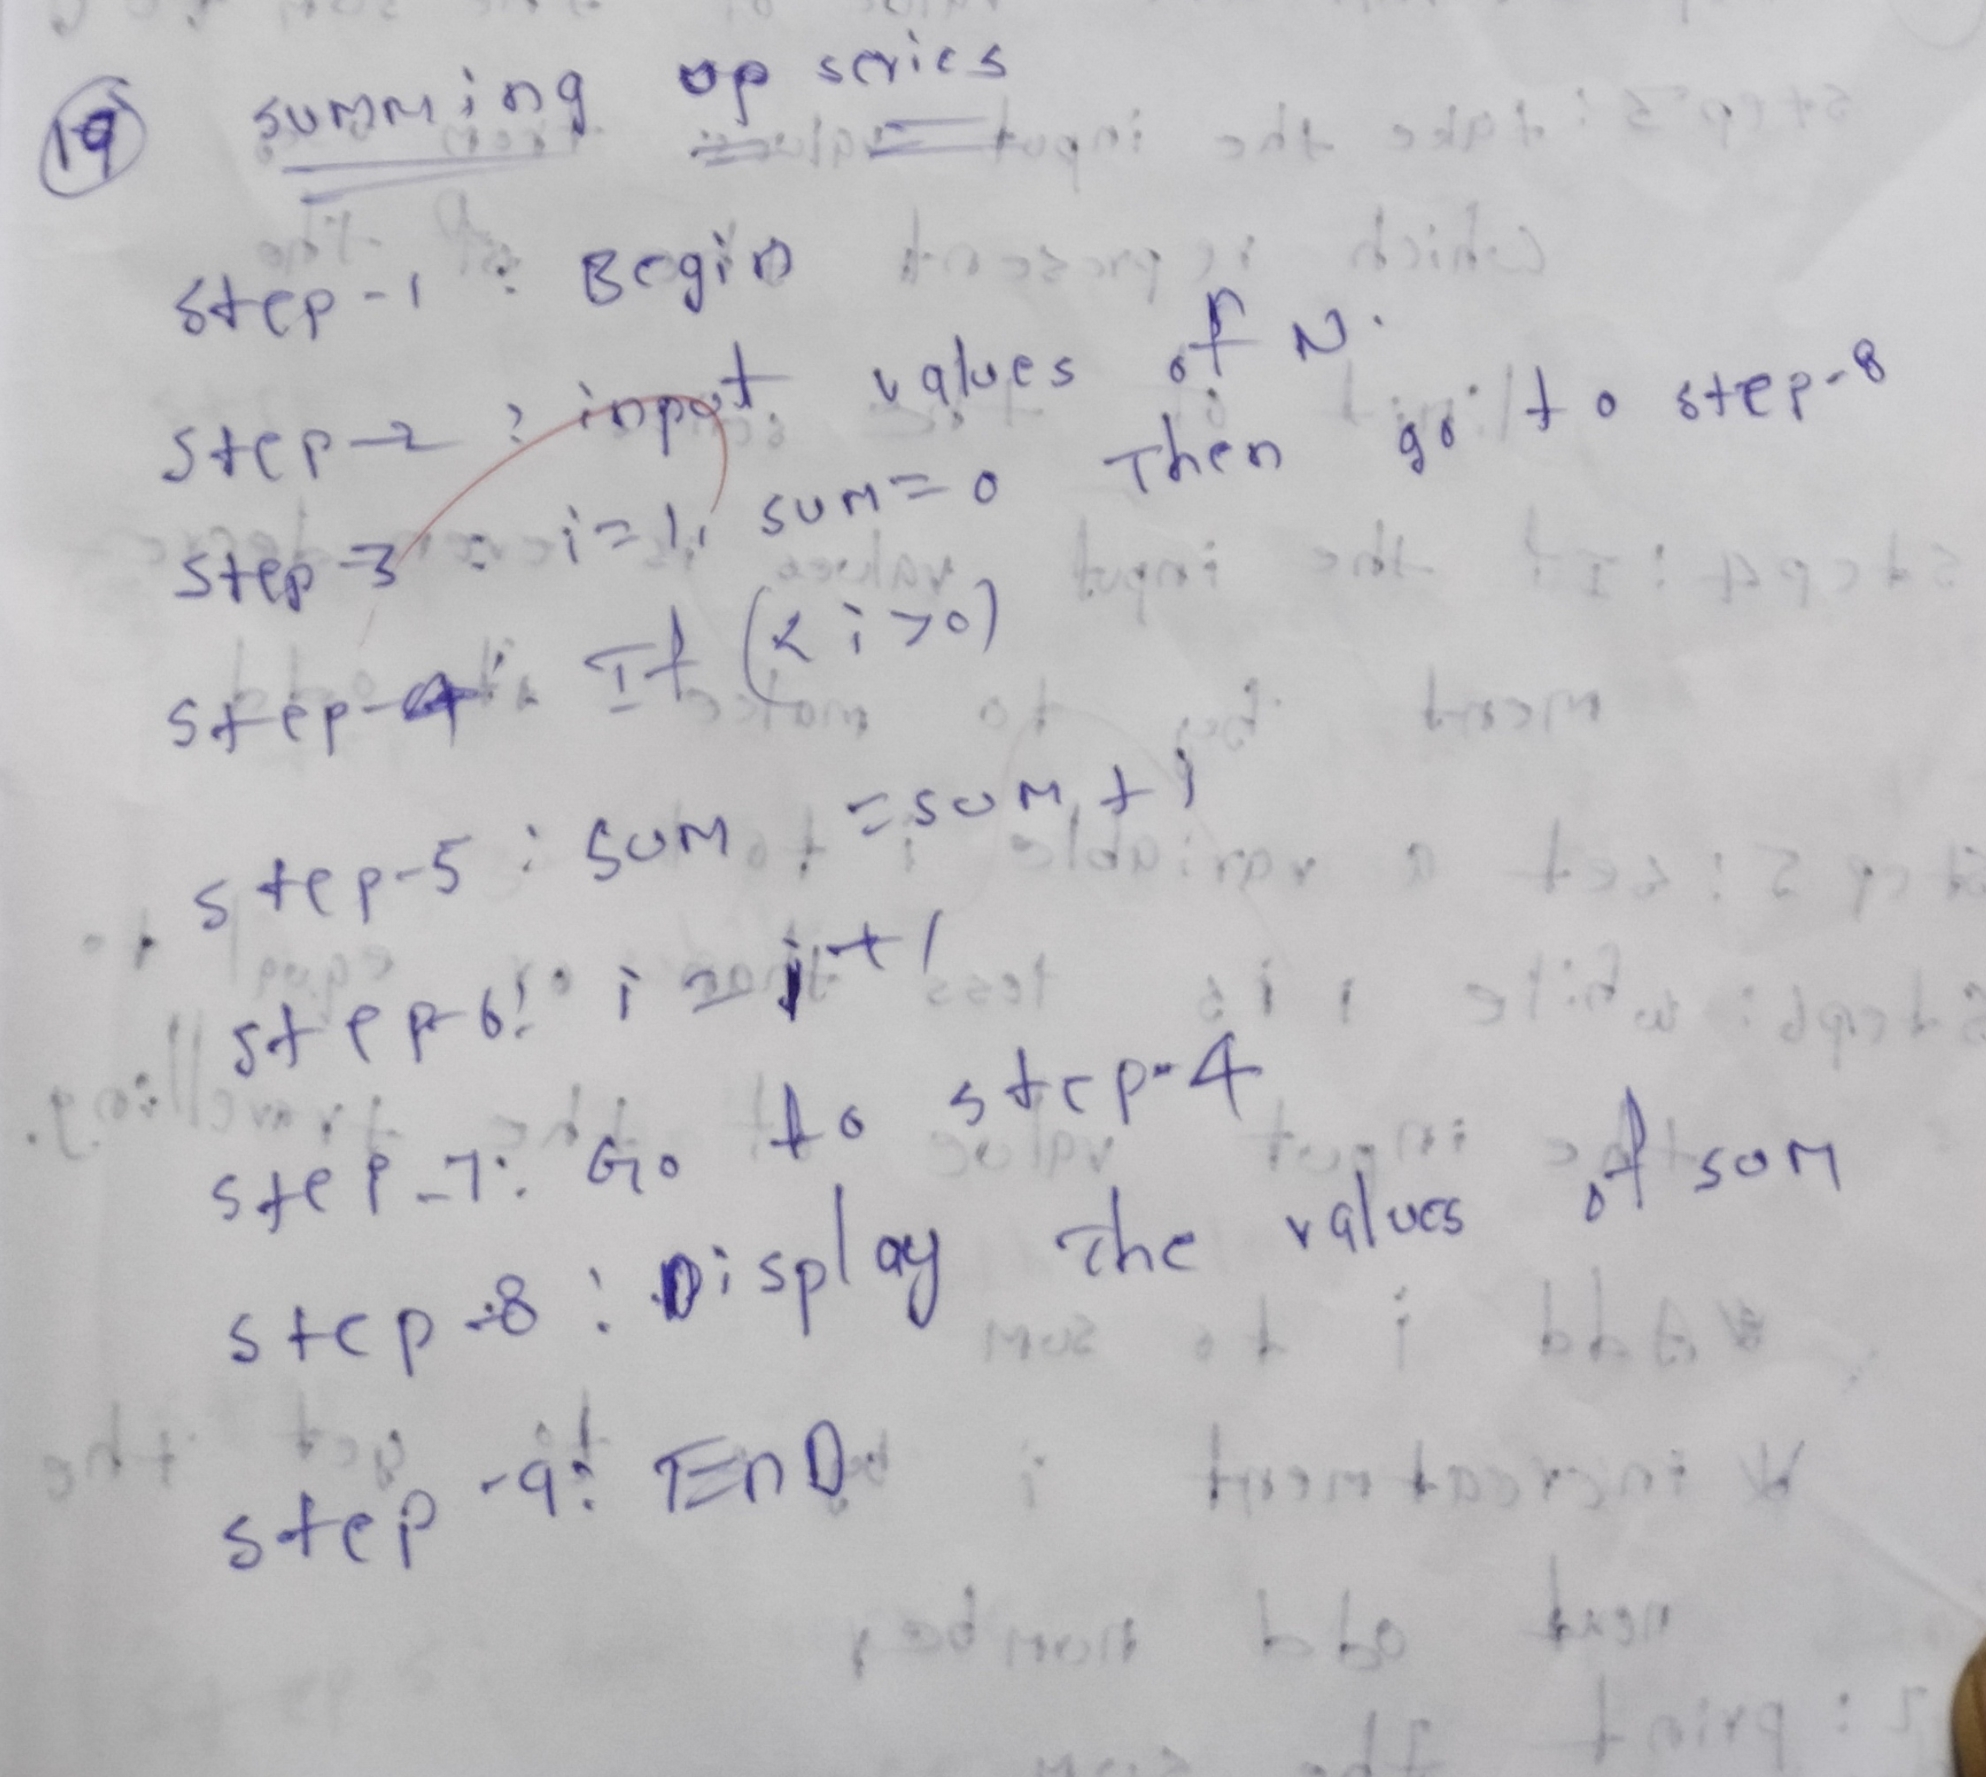 19 summing op series
step-1 : Begin
step-2 : input values of N.
step-3 : i=1, sum=0 Then go to step-8
step-4: If (i>0)
step-5 : sum = sum + i
step-6: i = i+1
step-7: Go to step-4
step-8 : Display The values of sum
step-9: EnD